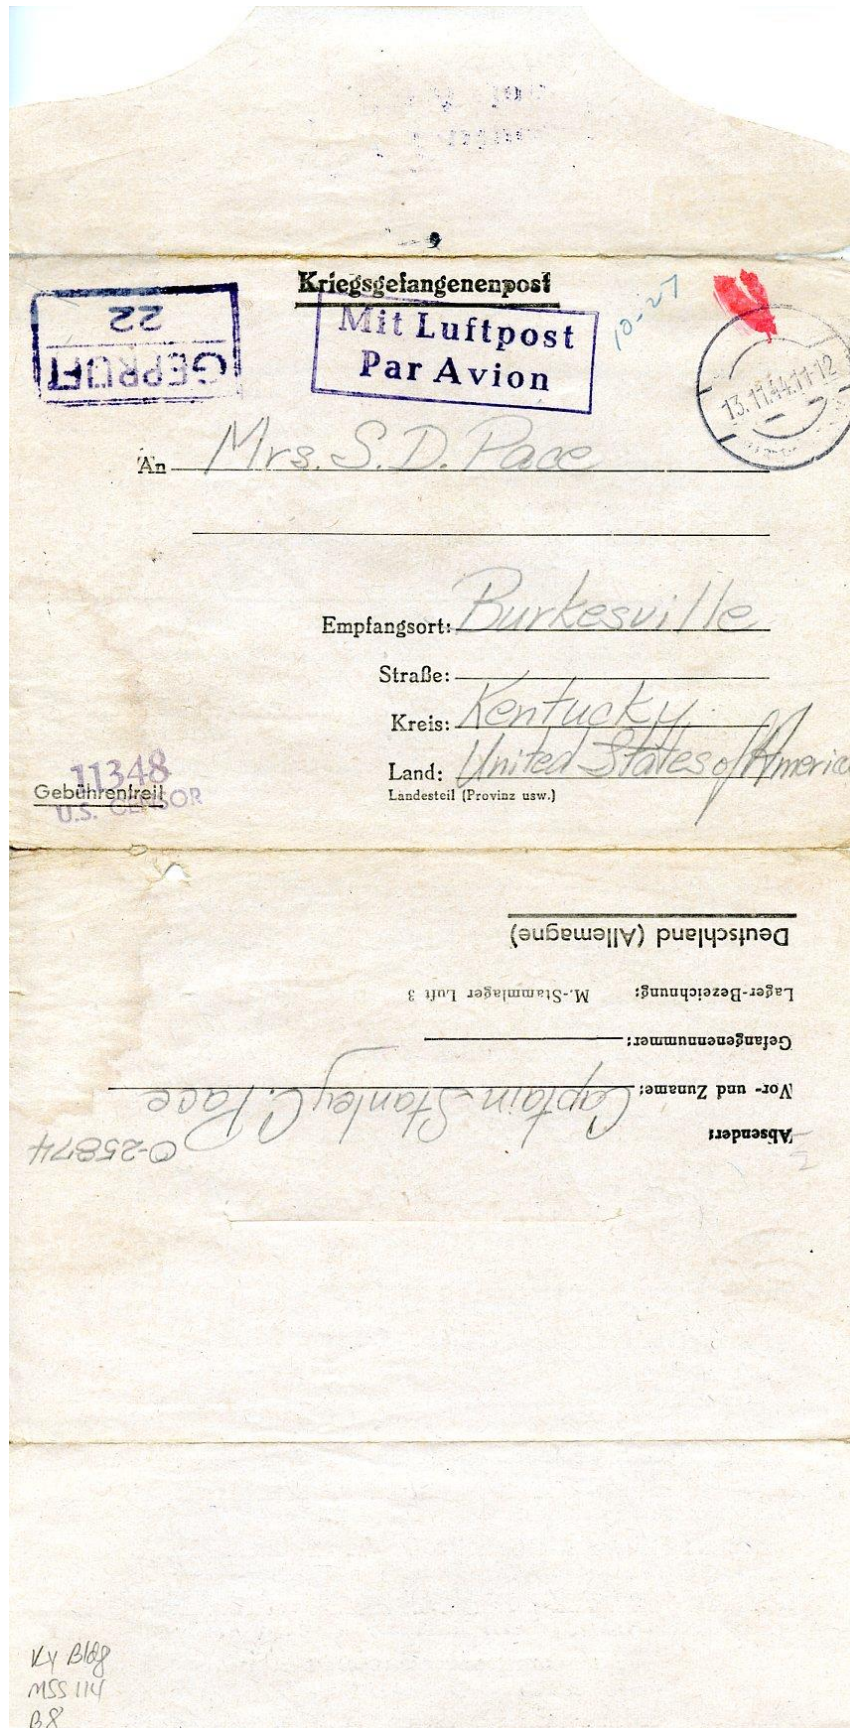 Kriegsgefangenenpost
22
GEPRÜFT
Mit Luftpost
Par Avion
10-27
13.11.44.11-12
An Mrs. S. D. Pace
Empfangsort: Burkesville
Straße:
Kreis: Kentucky
Land: United States of America
Landesteil (Provinz usw.)
11348
U.S. CENSOR
Gebührenfrei!
Absender:
Vor- und Zuname: Captain Stanley C. Pace
O-25874
Gefangenennummer:
Lager-Bezeichnung: M.-Stammlager Luft 3
Deutschland (Allemagne)
Ky Bldg
MSS 114
B8